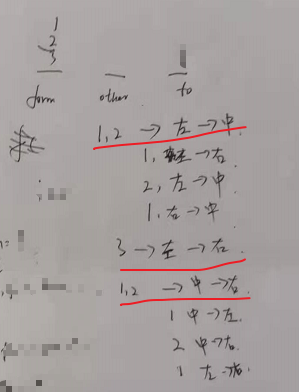 1
2
3
form other to
1,2 → 左 → 中.
1, 左 → 右.
2, 左 → 中.
1, 右 → 中
3 → 左 → 右.
1,2 → 中 → 右.
1 中 → 左.
2 中 → 右.
1 左 → 右.